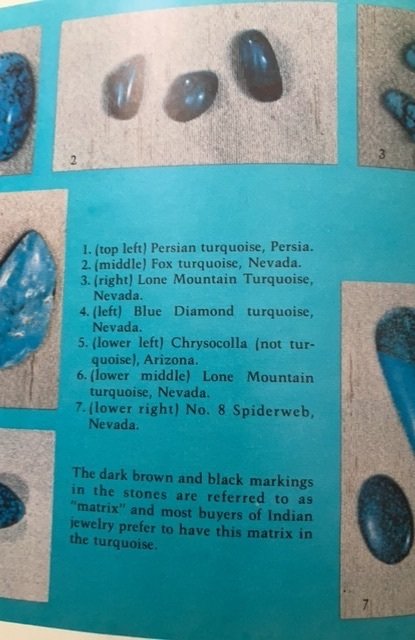 2
3
1. (top left) Persian turquoise, Persia.
2. (middle) Fox turquoise, Nevada.
3. (right) Lone Mountain Turquoise,
Nevada.
4. (left) Blue Diamond turquoise,
Nevada.
5. (lower left) Chrysocolla (not tur-
quoise), Arizona.
6. (lower middle) Lone Mountain
turquoise, Nevada.
7. (lower right) No. 8 Spiderweb,
Nevada.
The dark brown and black markings
in the stones are referred to as
"matrix" and most buyers of Indian
jewelry prefer to have this matrix in
the turquoise.
7